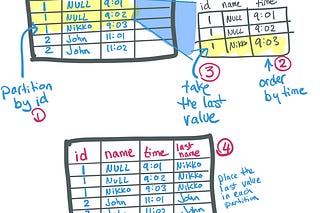 1 NULL 9:01
1 NULL 9:02
1 Nikko 9:03
2 John 11:01
2 John 11:02
partition
by id
1
id name time
1 NULL 9:01
1 NULL 9:02
1 Nikko 9:03
3
take
the last
value
2
order
by time
4
id name time last
name
1 NULL 9:01 Nikko
1 NULL 9:02 Nikko
1 Nikko 9:03 Nikko
2 John 11:01 John
2 John 11:02 John
place the
last value
in each
partition